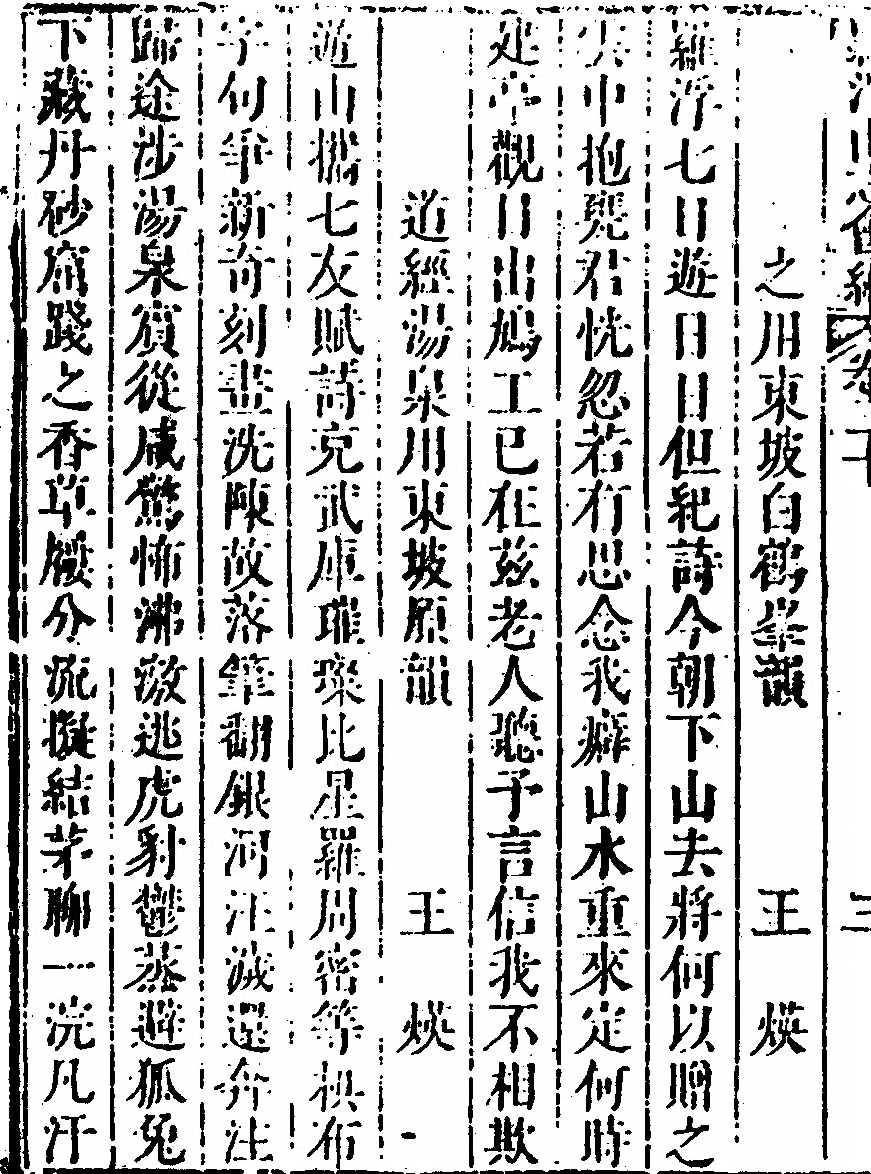 羅浮山會編 卷 三
之用東坡白鶴峯韻 王煐
羅浮七日遊日日但紀詩今朝下山去將何以贈之
中抱甕君恍忽若有思念我癖山水重來定何時
亭觀日出鳩工已在茲老人聽予言信我不相欺
道經湯泉用東坡原韻 王煐
遊山攜七友賦詩克武庫璀璨比星羅周密等棋布
字句爭新奇刻畫洗陳故落筆翻銀河汪濊還奔注
歸途涉湯泉賓從咸驚怖沸激逃虎豹鬱蒸避狐兔
下藏丹砂窟踐之香草馥分流擬結茅聊一浣凡汗